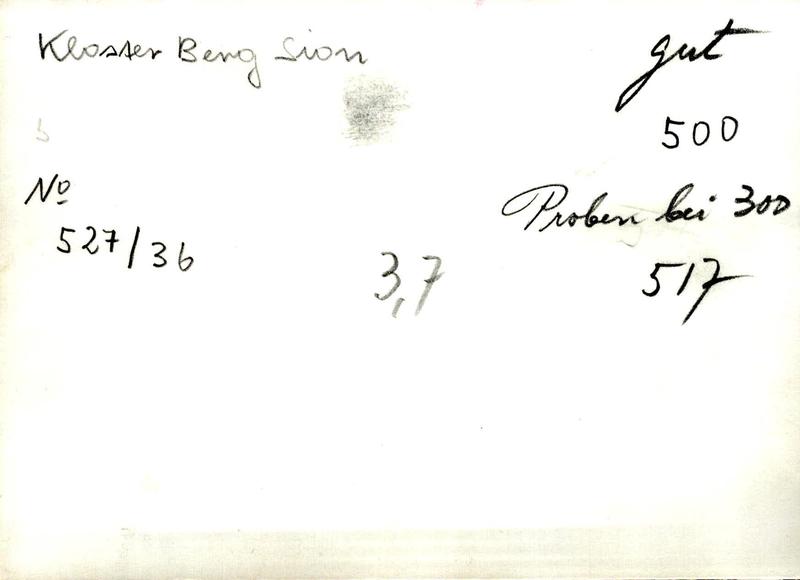 Kloster Berg Sion
gut
500
No
527/36
Proben bei 300
517
3,7